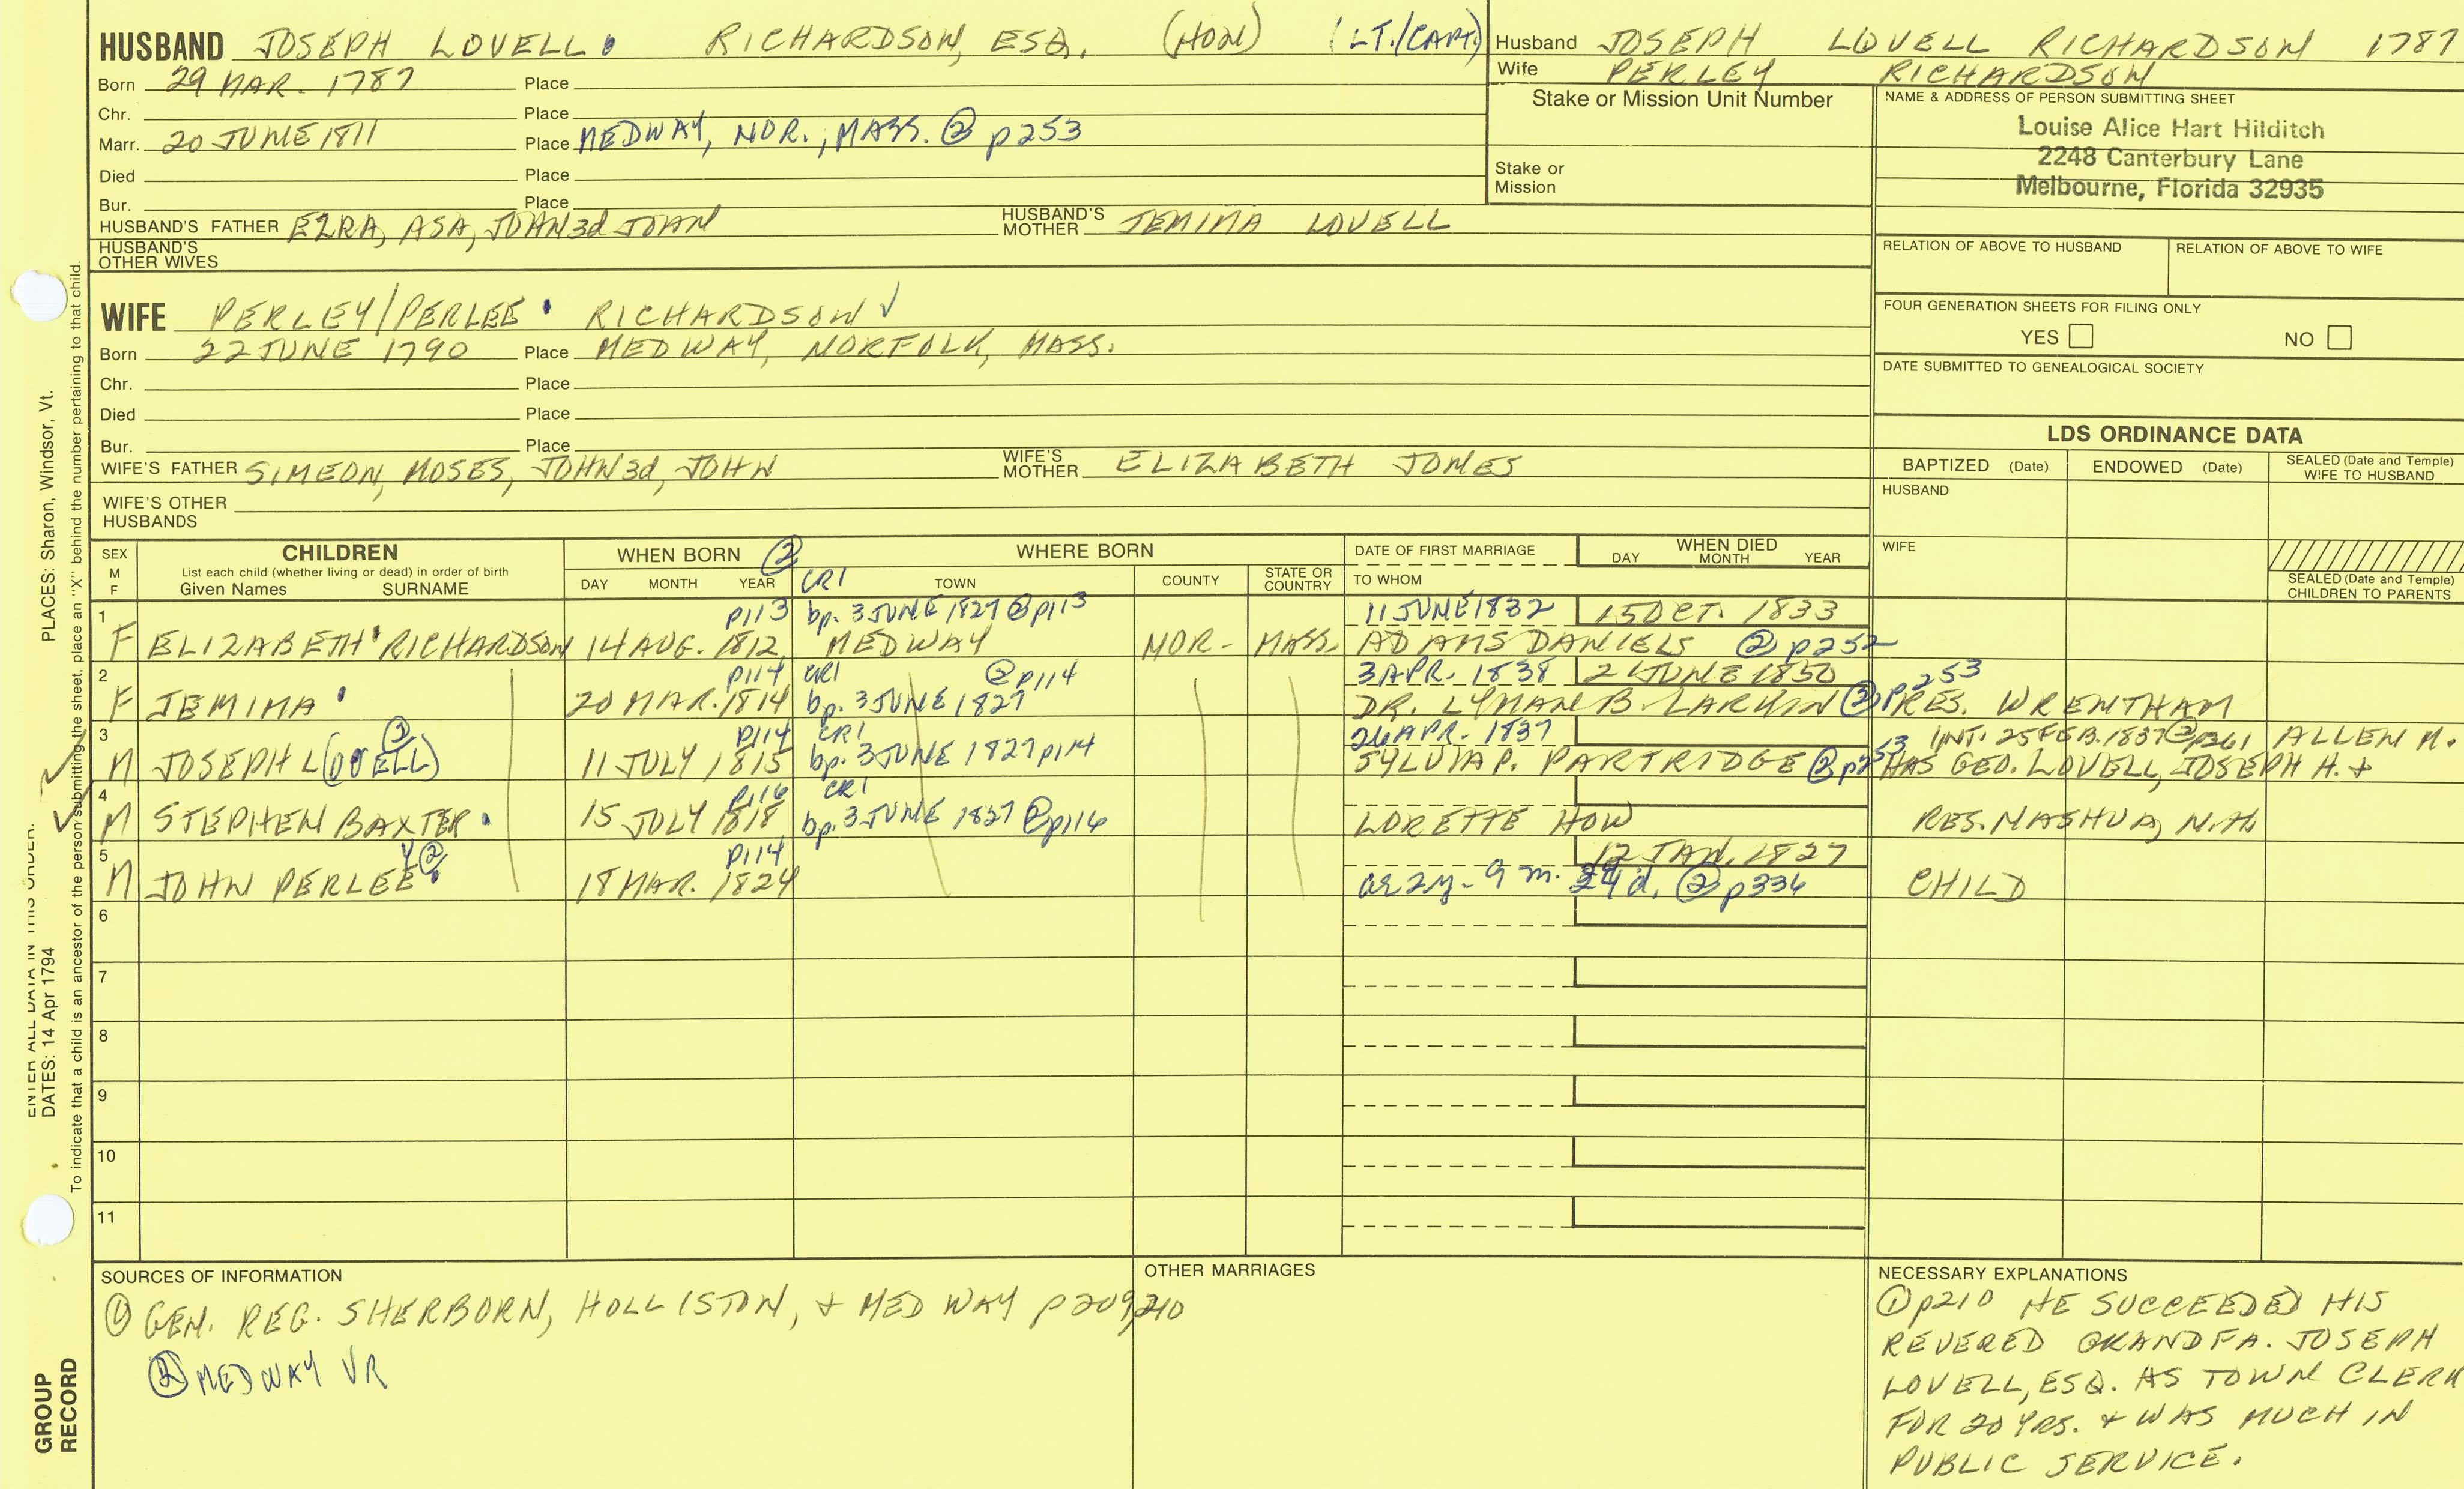 HUSBAND JOSEPH LOVELL RICHARDSON, ESQ. (HON) (LT./CAPT.)
Born 29 MAR. 1787 Place
Chr. Place
Marr. 20 JUNE 1811 Place MEDWAY, NOR., MASS. ② p253
Died Place
Bur. Place
HUSBAND'S FATHER EZRA, ASA, JOHN 3d JOHN HUSBAND'S MOTHER JEMIMA LOVELL
HUSBAND'S OTHER WIVES
WIFE PERLEY/PERLEE RICHARDSON ✓
Born 22 JUNE 1790 Place MEDWAY, NORFOLK, MASS.
Chr. Place
Died Place
Bur. Place
WIFE'S FATHER SIMEON, MOSES, JOHN 3d, JOHN WIFE'S MOTHER ELIZABETH JONES
WIFE'S OTHER HUSBANDS
Husband JOSEPH LOVELL RICHARDSON 1787
Wife PERLEY RICHARDSON
Stake or Mission Unit Number
Stake or Mission
NAME & ADDRESS OF PERSON SUBMITTING SHEET
Louise Alice Hart Hilditch
2248 Canterbury Lane
Melbourne, Florida 32935
RELATION OF ABOVE TO HUSBAND RELATION OF ABOVE TO WIFE
FOUR GENERATION SHEETS FOR FILING ONLY
YES NO
DATE SUBMITTED TO GENEALOGICAL SOCIETY
LDS ORDINANCE DATA
BAPTIZED (Date) ENDOWED (Date) SEALED (Date and Temple) WIFE TO HUSBAND
HUSBAND
WIFE
SEALED (Date and Temple) CHILDREN TO PARENTS
SEX M F
CHILDREN
List each child (whether living or dead) in order of birth
Given Names SURNAME
WHEN BORN ②
DAY MONTH YEAR
WHERE BORN
CR1 TOWN COUNTY STATE OR COUNTRY
DATE OF FIRST MARRIAGE
TO WHOM
WHEN DIED
DAY MONTH YEAR
1 p113 bp. 3 JUNE 1827 ② p113 11 JUNE 1832 15 OCT. 1833
F ELIZABETH RICHARDSON 14 AUG. 1812 MEDWAY NOR- MASS. ADAMS DANIELS ② p252
2 p114 CR1 ② p114 3 APR. 1838 JUNE 1850 p253
F JEMIMA 20 MAR. 1814 bp. 3 JUNE 1827 DR. LYMAN B. LARKIN ② RES. WRENTHAM
3 p114 CR1 26 APR. 1837 INT. 25 FEB. 1837 ② p261 ALLEN M.
M JOSEPH L(OVELL) 11 JULY 1815 bp. 3 JUNE 1827 p114 SYLVIA P. PARTRIDGE ② p253 HAS GEO. LOVELL, JOSEPH H. +
4 p116 CR1
M STEPHEN BAXTER 15 JULY 1818 bp. 3 JUNE 1827 ② p116 LORETTE HOW RES. NASHUA, N.H.
5 Y② p114 12 JAN. 1827
M JOHN PERLEE 18 MAR. 1824 ae 2y- 9 m. 24 d. ② p336 CHILD
6
7
8
9
10
11
SOURCES OF INFORMATION
① GEN. REG. SHERBORN, HOLLISTON, + MEDWAY p209,210
② MEDWAY VR
OTHER MARRIAGES
NECESSARY EXPLANATIONS
① p210 HE SUCCEEDED HIS
REVERED GRANDFA. JOSEPH
LOVELL, ESQ. AS TOWN CLERK
FOR 20 YRS. + WAS MUCH IN
PUBLIC SERVICE.
ENTER ALL DATA IN THIS ORDER:
PLACES: Sharon, Windsor, Vt.
DATES: 14 Apr 1794
To indicate that a child is an ancestor of the person submitting the sheet, place an "X" behind the number pertaining to that child.
GROUP RECORD